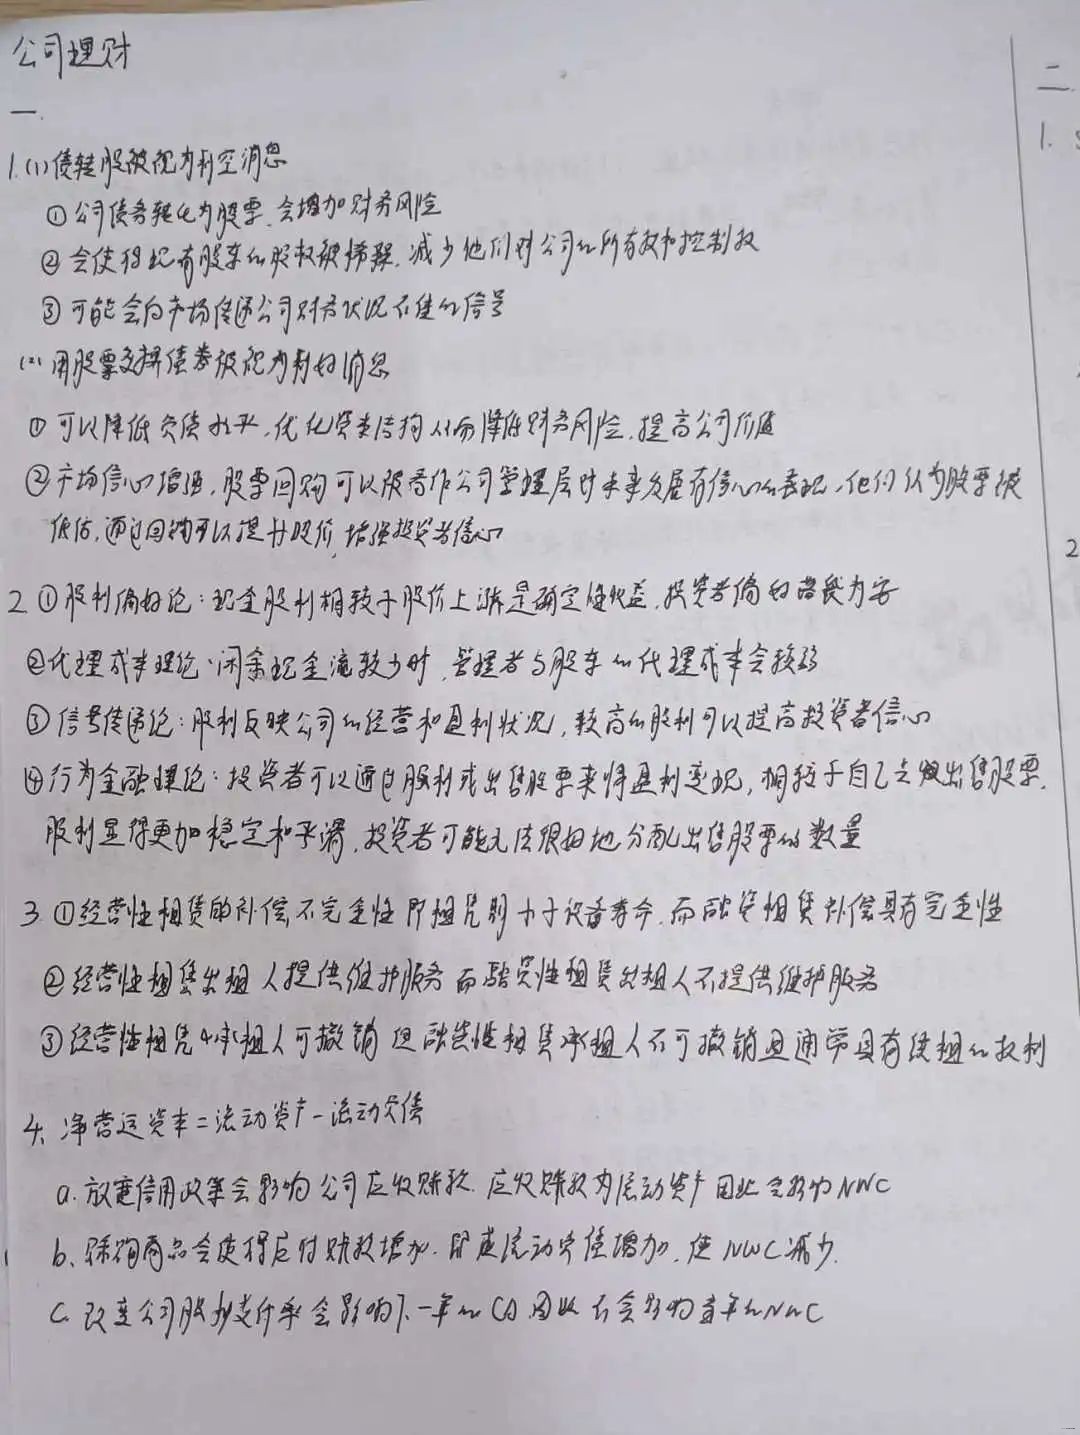 公司理财
一.
1.(1)债转股被视为利空消息
①公司债务转化为股票,会增加财务风险
②会使得现有股东的股权被稀释,减少他们对公司的所有权和控制权
③可能会向市场传递公司财务状况不佳的信号
(2)用股票交换债券被视为利好消息
①可以降低负债水平,优化资本结构从而降低财务风险,提高公司价值
②市场信心增强,股票回购可以被看作公司管理层对未来发展有信心的表现,他们认为股票被
低估,通过回购可以提升股价,增强投资者信心
2.①股利偏好论:现金股利相较于股价上涨是确定性收益,投资者偏好落袋为安
②代理成本理论:闲余现金流较少时,管理者与股东的代理成本会较弱
③信号传递论:股利反映公司的经营和盈利状况,较高的股利可以提高投资者信心
④行为金融理论:投资者可以通过股利或出售股票来将盈利变现,相较于自己去做出售股票,
股利显得更加稳定和平滑,投资者可能无法很好地分配出售股票的数量
3.①经营性租赁的补偿不完全性即租赁期小于设备寿命,而融资租赁补偿具有完全性
②经营性租赁出租人提供维护服务而融资性租赁出租人不提供维护服务
③经营性租赁的承租人可撤销但融资性租赁承租人不可撤销且通常具有续租的权利
4、净营运资本=流动资产-流动负债
a.放宽信用政策会影响公司应收账款,应收账款为流动资产因此会影响NWC
b、采购商品会使得应付账款增加,即是流动负债增加,使NWC减少.
C.改变公司股利支付率会影响下一年的CA因此不会影响当年的NWC
二.
1.
2